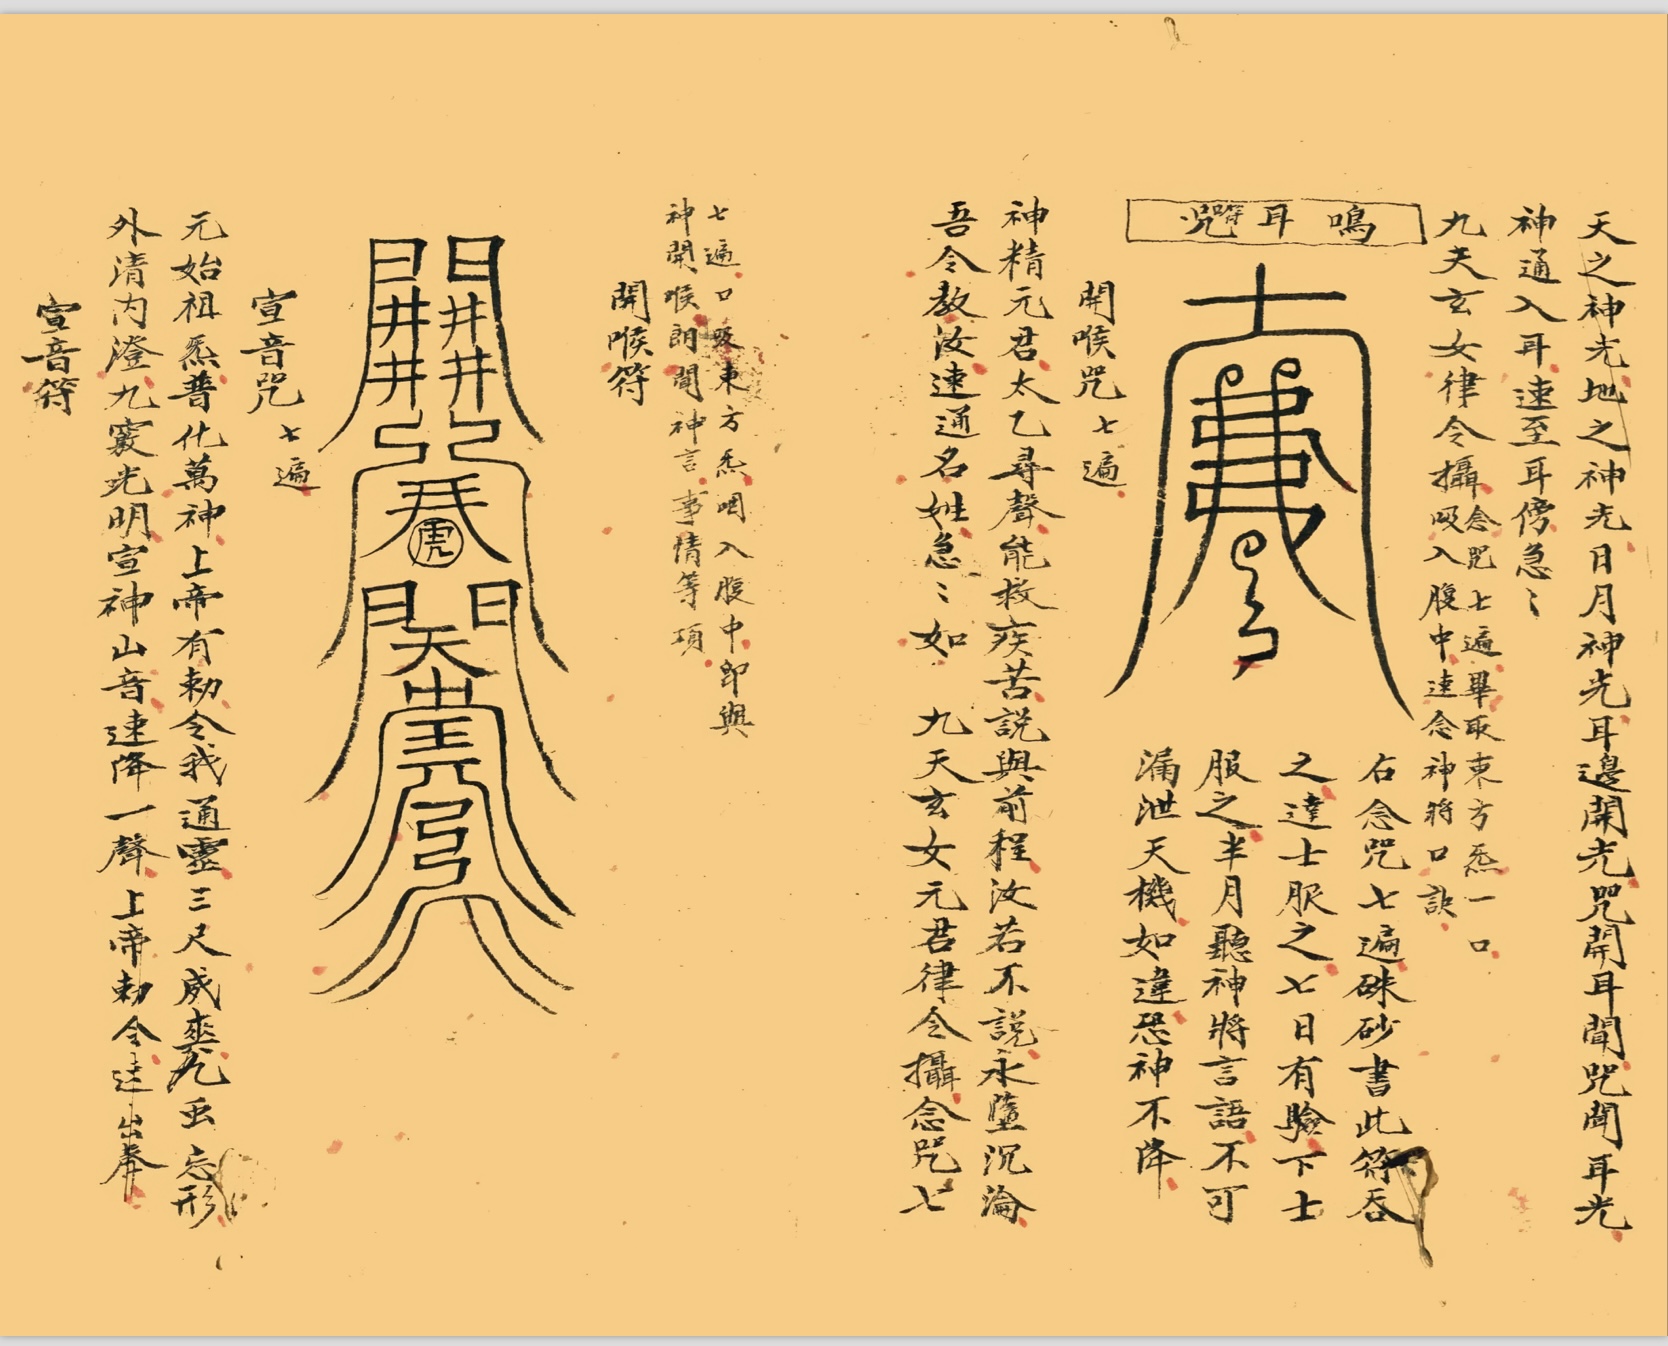 天之神光地之神光日月神光耳邊開光咒開耳聞咒聞耳光
神通入耳速至耳傍急〻
九天玄女律令攝念咒七遍畢取東方炁一口
吸入腹中速念神將口訣
鳴耳符咒
右念咒七遍硃砂書此符吞
之達士服之七日有驗下士
服之半月聽神將言語不可
漏泄天機如違恐神不降
開喉咒七遍
神精元君太乙尋聲能救疾苦説與前程汝若不説永墮沉淪
吾令教汝速通名姓急〻如 九天玄女元君律令攝念咒七
七遍口吸東方炁咽入腹中即與
神開喉朗聞神言事情等項
開喉符
宣音咒七遍
元始祖炁普化萬神上帝有勅令我通靈三尺威 忘形
外清内澄九竅光明宣神山音速降一聲上帝勅令速出
宣音符